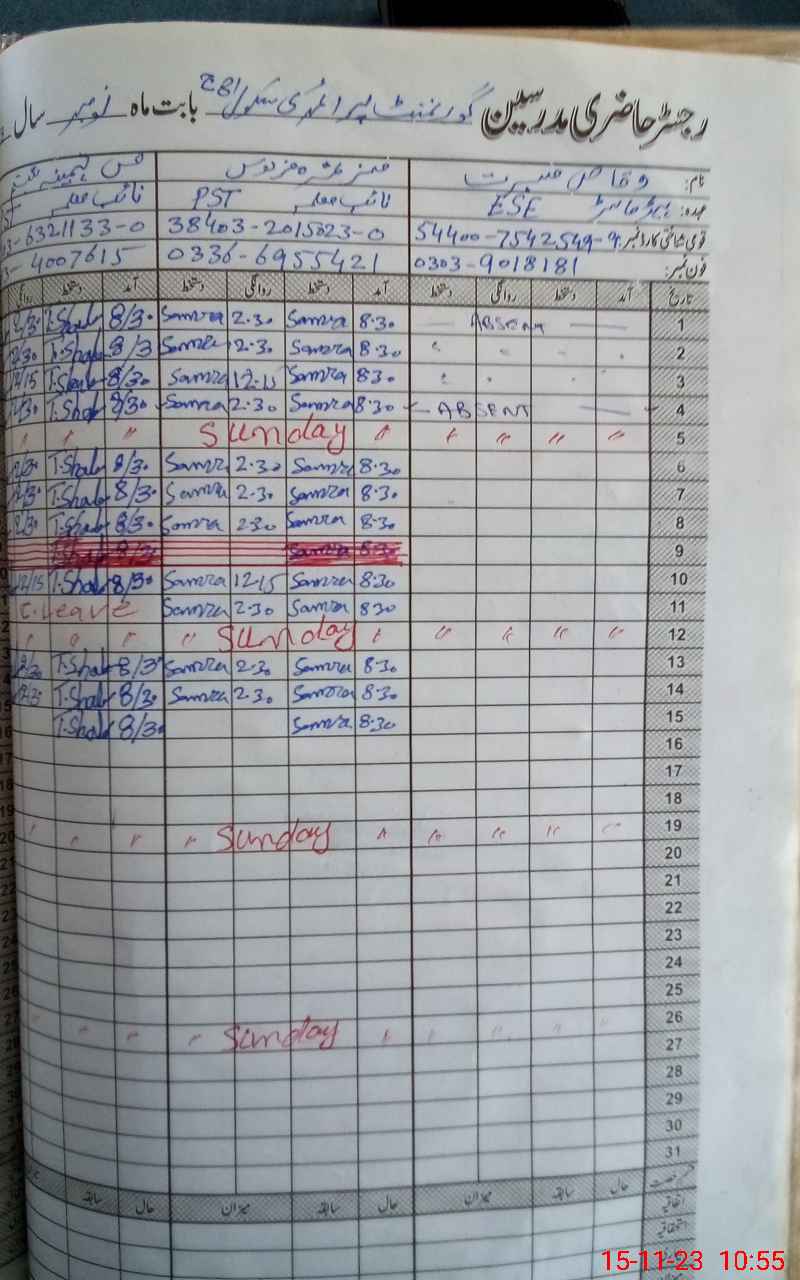 رجسٹر حاضری مدرسین گورنمنٹ پرائمری سکول 81 ج بابت ماہ نومبر سال
نام: وقاص
عہدہ: ESE نائب معلمہ PST نائب معلمہ
قومی شناختی کارڈ نمبر: 54400-7542549-9 38403-2015023-0 6321133-0
فون نمبر: 0303-9018181 0336-6955421 4007615
تاریخ آمد دستخط روانگی دستخط آمد دستخط روانگی دستخط آمد دستخط روانگی
1 — ABSENT — 8.30 Samra 2.30 Samra 8/30 T.Shab 2/30
2 " " " " 8.30 Samra 2.30 Samra 8/3 T.Shab 2/30
3 " " " 8.30 Samra 12.15 Samra 8/30 T.Shab 12/15
4 — ABSENT — 8.30 Samra 2.30 Samra 8/30 T.Shab 2/30
5 " " " " " Sunday " " "
6 8.30 Samra 2.30 Samra 8/30 T.Shab 2/30
7 8.30 Samra 2.30 Samra 8/30 T.Shab 2/30
8 8.30 Samra 2.30 Samra 8/30 T.Shab 2/30
9 8.30 Samra 8/30 T.Shab
10 8.30 Samra 12.15 Samra 8/30 T.Shab 12/15
11 8.30 Samra 2.30 Samra C.Leave
12 " " " " " Sunday " " " "
13 8.30 Samra 2.30 Samra 8/30 T.Shab 2/30
14 8.30 Samra 2.30 Samra 8/30 T.Shab 2/30
15 8.30 Samra 8/30 T.Shab
16
17
18
19 " " " " " Sunday " " " "
20
21
22
23
24
25
26 " " " " " Sunday " " " "
27
28
29
30
31
حال سابقہ میزان حال سابقہ میزان حال سابقہ
اتفاقیہ
استحقاقیہ
15-11-23 10:55